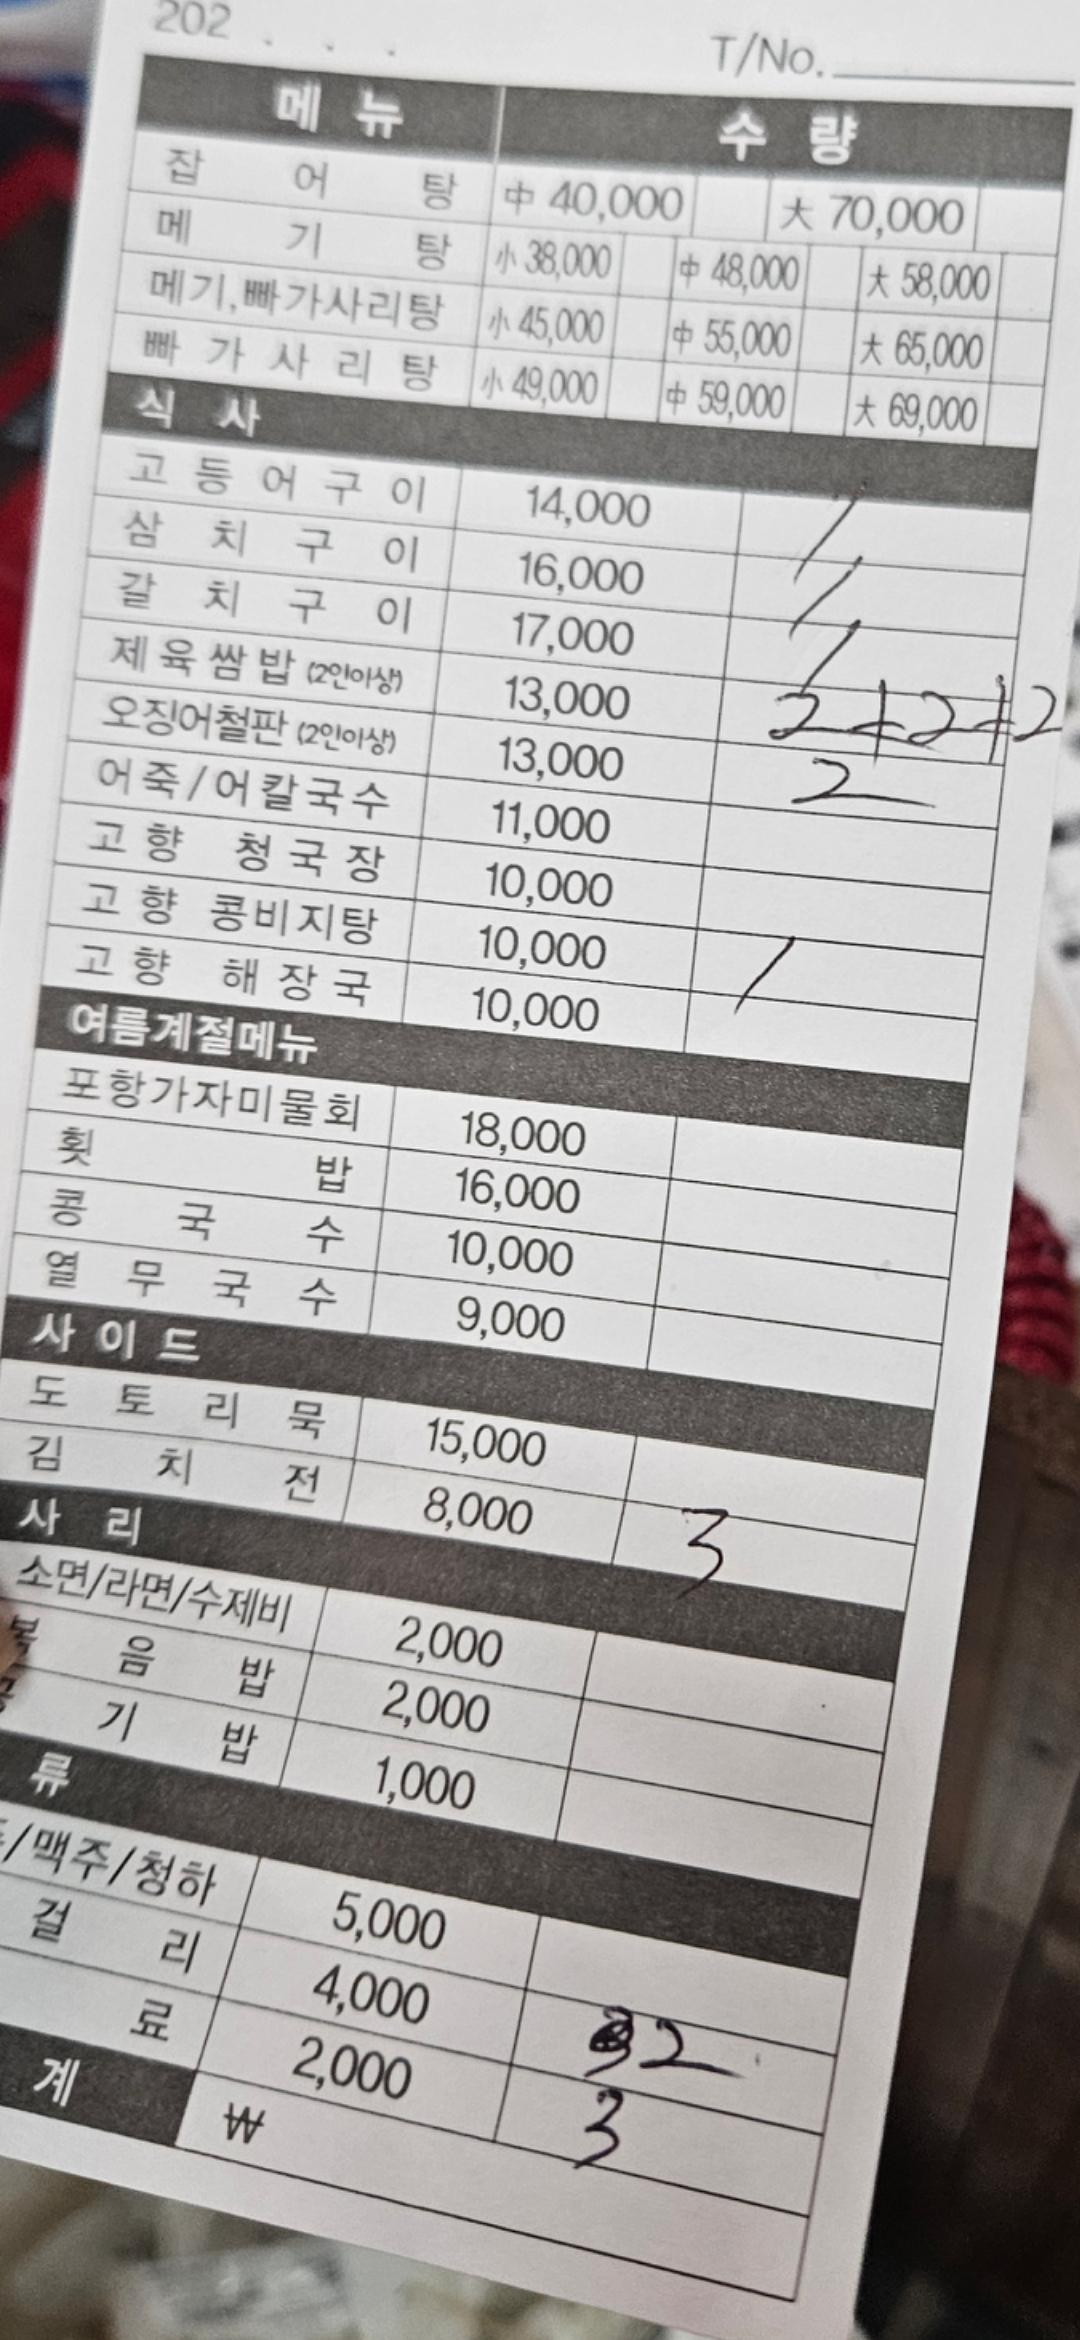 202 . . .
T/No.
메뉴 수량
잡어탕 中 40,000 大 70,000
메기탕 小 38,000 中 48,000 大 58,000
메기,빠가사리탕 小 45,000 中 55,000 大 65,000
빠가사리탕 小 49,000 中 59,000 大 69,000
식사
고등어구이 14,000 /
삼치구이 16,000 /
갈치구이 17,000 /
제육쌈밥 (2인이상) 13,000 2+2+2
오징어철판 (2인이상) 13,000 2
어죽/어칼국수 11,000
고향 청국장 10,000
고향 콩비지탕 10,000 /
고향 해장국 10,000
여름계절메뉴
포항가자미물회 18,000
횟밥 16,000
콩국수 10,000
열무국수 9,000
사이드
도토리묵 15,000
김치전 8,000 3
사리
소면/라면/수제비 2,000
볶음밥 2,000
기밥 1,000
류
/맥주/청하 5,000
걸리 4,000 2
료 2,000 3
계 ₩